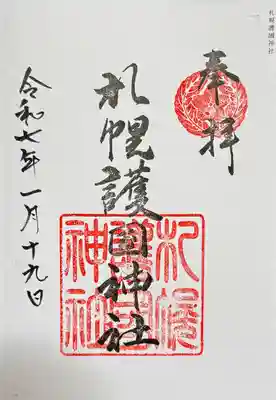 札幌護國神社
奉拝
札幌護國神社
札幌護國神社
令和七年一月十九日